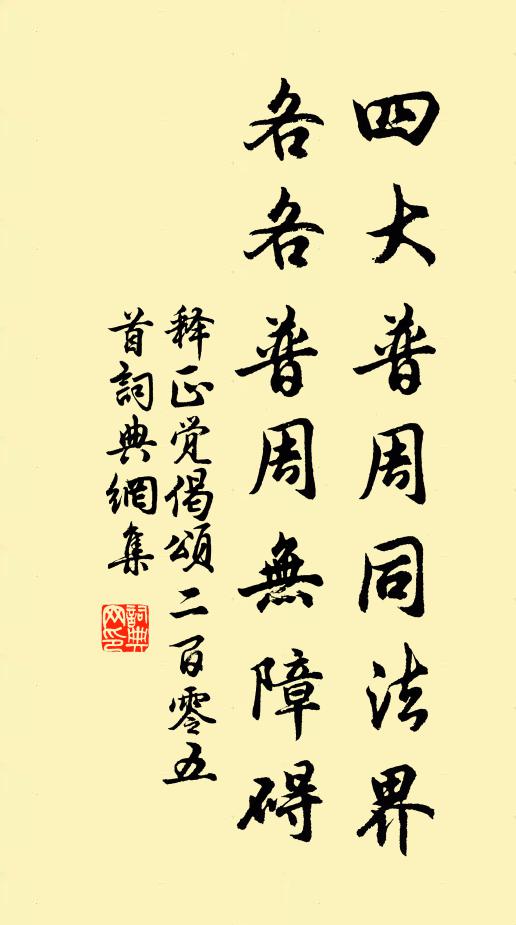 四大普周同法界
各各普周無障碍
释正觉偈頌二百零五
首詞典網集
詞典網印